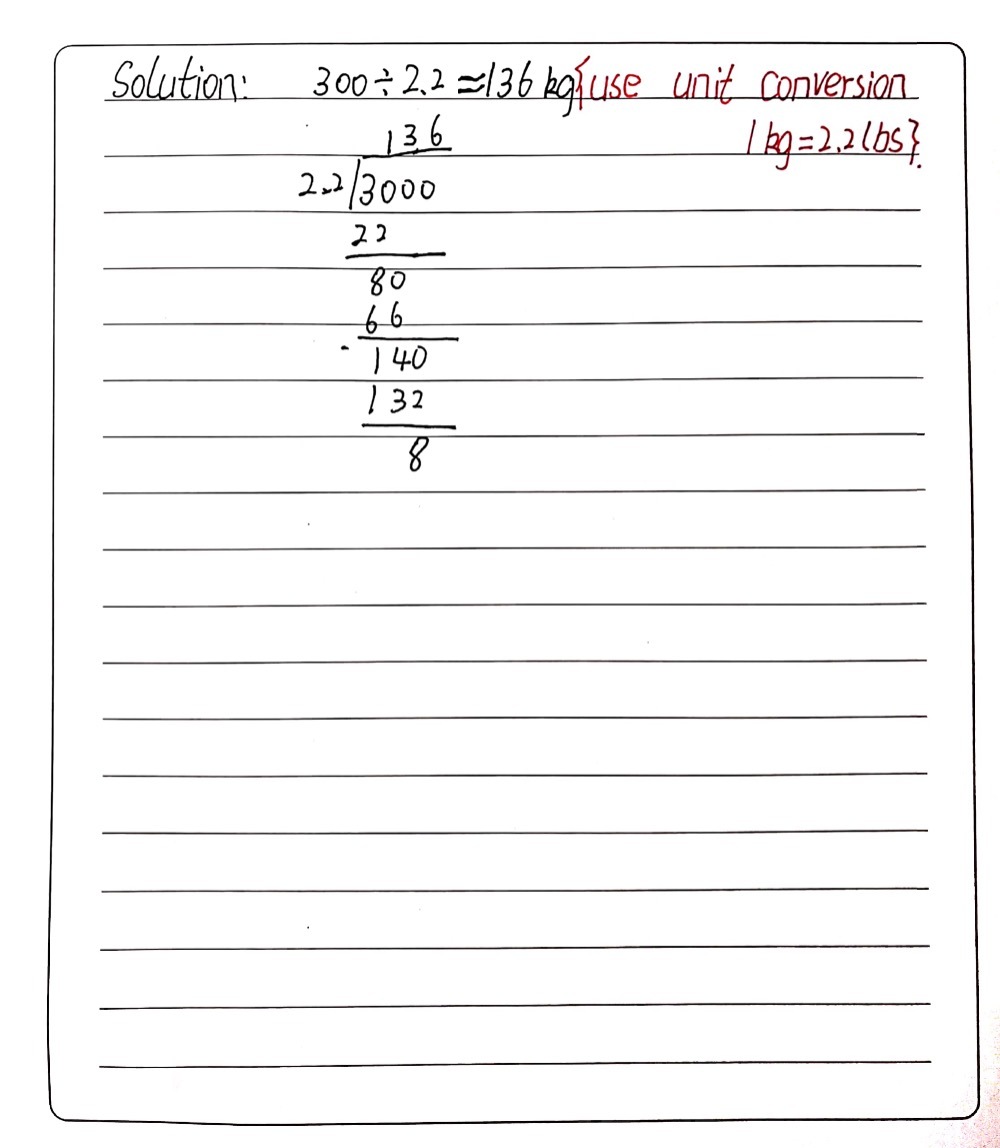 Solution: 300÷2.2≈136 kg{use unit conversion
1 kg=2.2lbs}.
136
2.2/3000
22
80
66
- 140
132
8